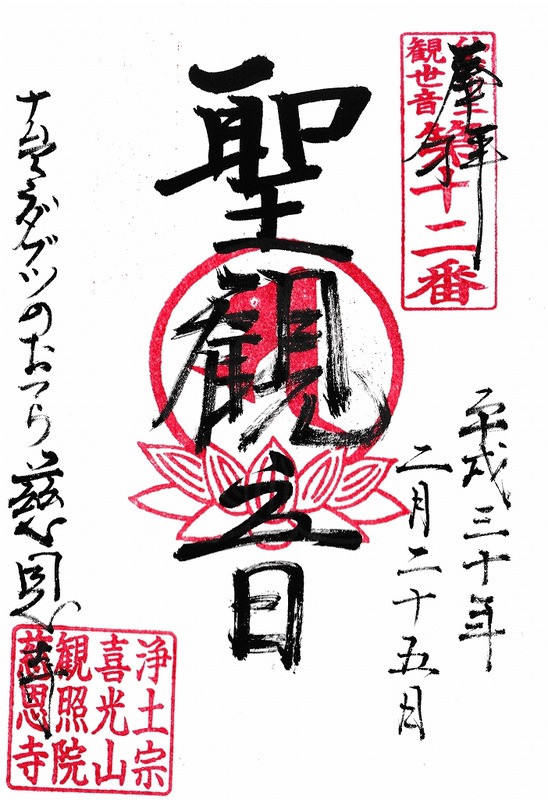 奉拝
観世音
第十二番
平成三十年
二月二十五日
聖観音
ダブツのおてら 慈恩寺
浄土宗
喜光山
観照院
慈恩寺